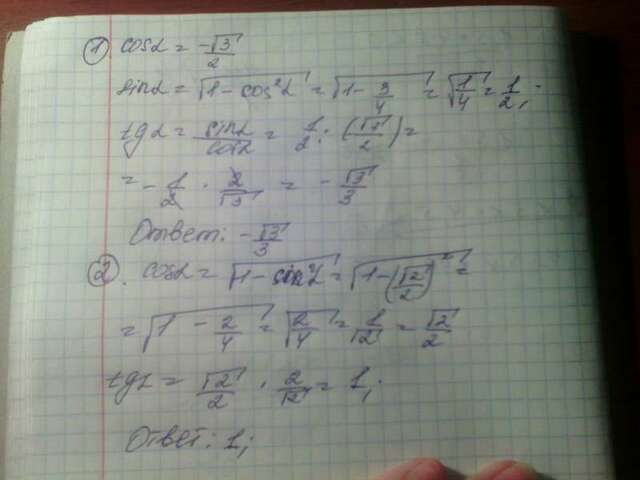 ① cosα = -√3/2
sinα = √(1 - cos²α) = √(1 - 3/4) = √(1/4) = 1/2;
tgα = sinα/cosα = 1/2 : (√3/2) =
= - 1/2 · 2/√3 = - √3/3
Ответ: - √3/3
② . cosα = √(1 - sin²α) = √(1 - (√2/2)²) =
= √(1 - 2/4) = √(2/4) = 1/√2 = √2/2
tgα = √2/2 · 2/√2 = 1;
Ответ: 1;